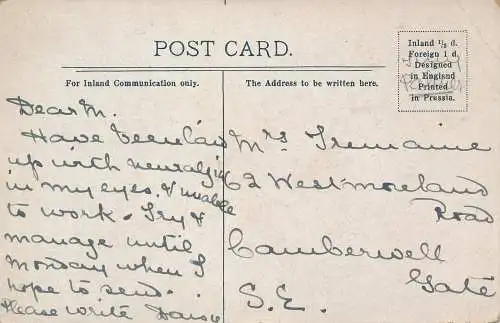 POST CARD.
Inland ½ d.
Foreign 1 d.
Designed
in England
Printed
in Prussia.
For Inland Communication only.
The Address to be written here.
Dear M.
Have been laid
up with neuralgia
in my eyes. & unable
to work. Try &
manage until
Monday when I
hope to send.
Please write Daisie
Mrs Tremaine
62 Westmoreland
Road
Camberwell
Gate
S.E.